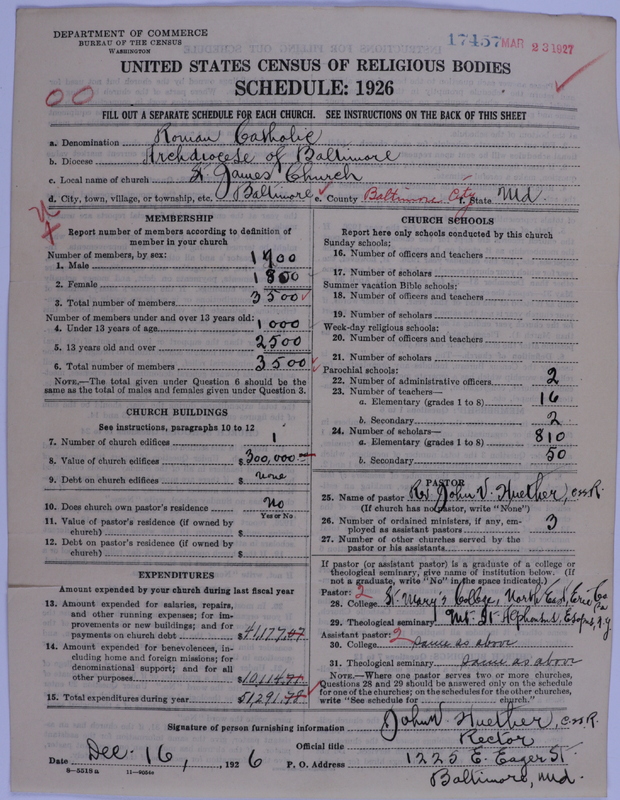 DEPARTMENT OF COMMERCE
BUREAU OF THE CENSUS
WASHINGTON
17457 MAR 23 1927
UNITED STATES CENSUS OF RELIGIOUS BODIES
SCHEDULE: 1926
00
FILL OUT A SEPARATE SCHEDULE FOR EACH CHURCH. SEE INSTRUCTIONS ON THE BACK OF THIS SHEET
a. Denomination Roman Catholic
b. Diocese Archdiocese of Baltimore
c. Local name of church St. James Church
d. City, town, village, or township, etc. Baltimore e. County Baltimore City f. State Md.
MEMBERSHIP
Report number of members according to definition of
member in your church
Number of members, by sex:
1. Male 1700
2. Female 1800
3. Total number of members 3500
Number of members under and over 13 years old:
4. Under 13 years of age 1000
5. 13 years old and over 2500
6. Total number of members 3500
NOTE.—The total given under Question 6 should be the
same as the total of males and females given under Question 3.
CHURCH BUILDINGS
See instructions, paragraphs 10 to 12
7. Number of church edifices 1
8. Value of church edifices $300,000
9. Debt on church edifices $ none
10. Does church own pastor's residence No
Yes or No
11. Value of pastor's residence (if owned by
church) $
12. Debt on pastor's residence (if owned by
church) $
EXPENDITURES
Amount expended by your church during last fiscal year
13. Amount expended for salaries, repairs,
and other running expenses; for im-
provements or new buildings; and for
payments on church debt $41,177.07
14. Amount expended for benevolences, in-
cluding home and foreign missions; for
denominational support; and for all
other purposes 10,114.71
15. Total expenditures during year $51,291.78
CHURCH SCHOOLS
Report here only schools conducted by this church
Sunday schools:
16. Number of officers and teachers
17. Number of scholars
Summer vacation Bible schools:
18. Number of officers and teachers
19. Number of scholars
Week-day religious schools:
20. Number of officers and teachers
21. Number of scholars
Parochial schools:
22. Number of administrative officers 2
23. Number of teachers—
a. Elementary (grades 1 to 8) 16
b. Secondary 2
24. Number of scholars—
a. Elementary (grades 1 to 8) 810
b. Secondary 50
PASTOR
25. Name of pastor Rev John V. Huether, CSSR.
(If church has no pastor, write "None")
26. Number of ordained ministers, if any, em-
ployed as assistant pastors 3
27. Number of other churches served by the
pastor or his assistants
If pastor (or assistant pastor) is a graduate of a college or
theological seminary, give name of institution below. (If
not a graduate, write "No" in the space indicated.)
Pastor: 2
28. College St. Mary's College, North East, Erie Co Pa
29. Theological seminary Mt. St. Alphonsus, Esopus, N.Y
Assistant pastor: 2
30. College same as above
31. Theological seminary same as above
NOTE.—Where one pastor serves two or more churches,
Questions 28 and 29 should be answered only on the schedule
for one of the churches; on the schedules for the other churches,
write "See schedule for church."
Signature of person furnishing information John V. Huether, CSSR.
Official title Rector
Date Dec. 16, 1926 P. O. Address 1225 E. Eager St.
Baltimore, Md.
8—5518 a 11—9054a